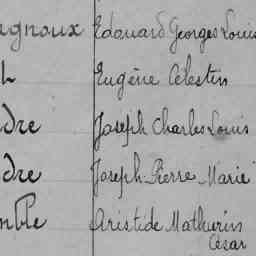 agnoux Edouard Georges Louis
Eugène Célestin
dre Joseph Charles Louis
dre Joseph Pierre Marie
mble Aristide Mathurin
César